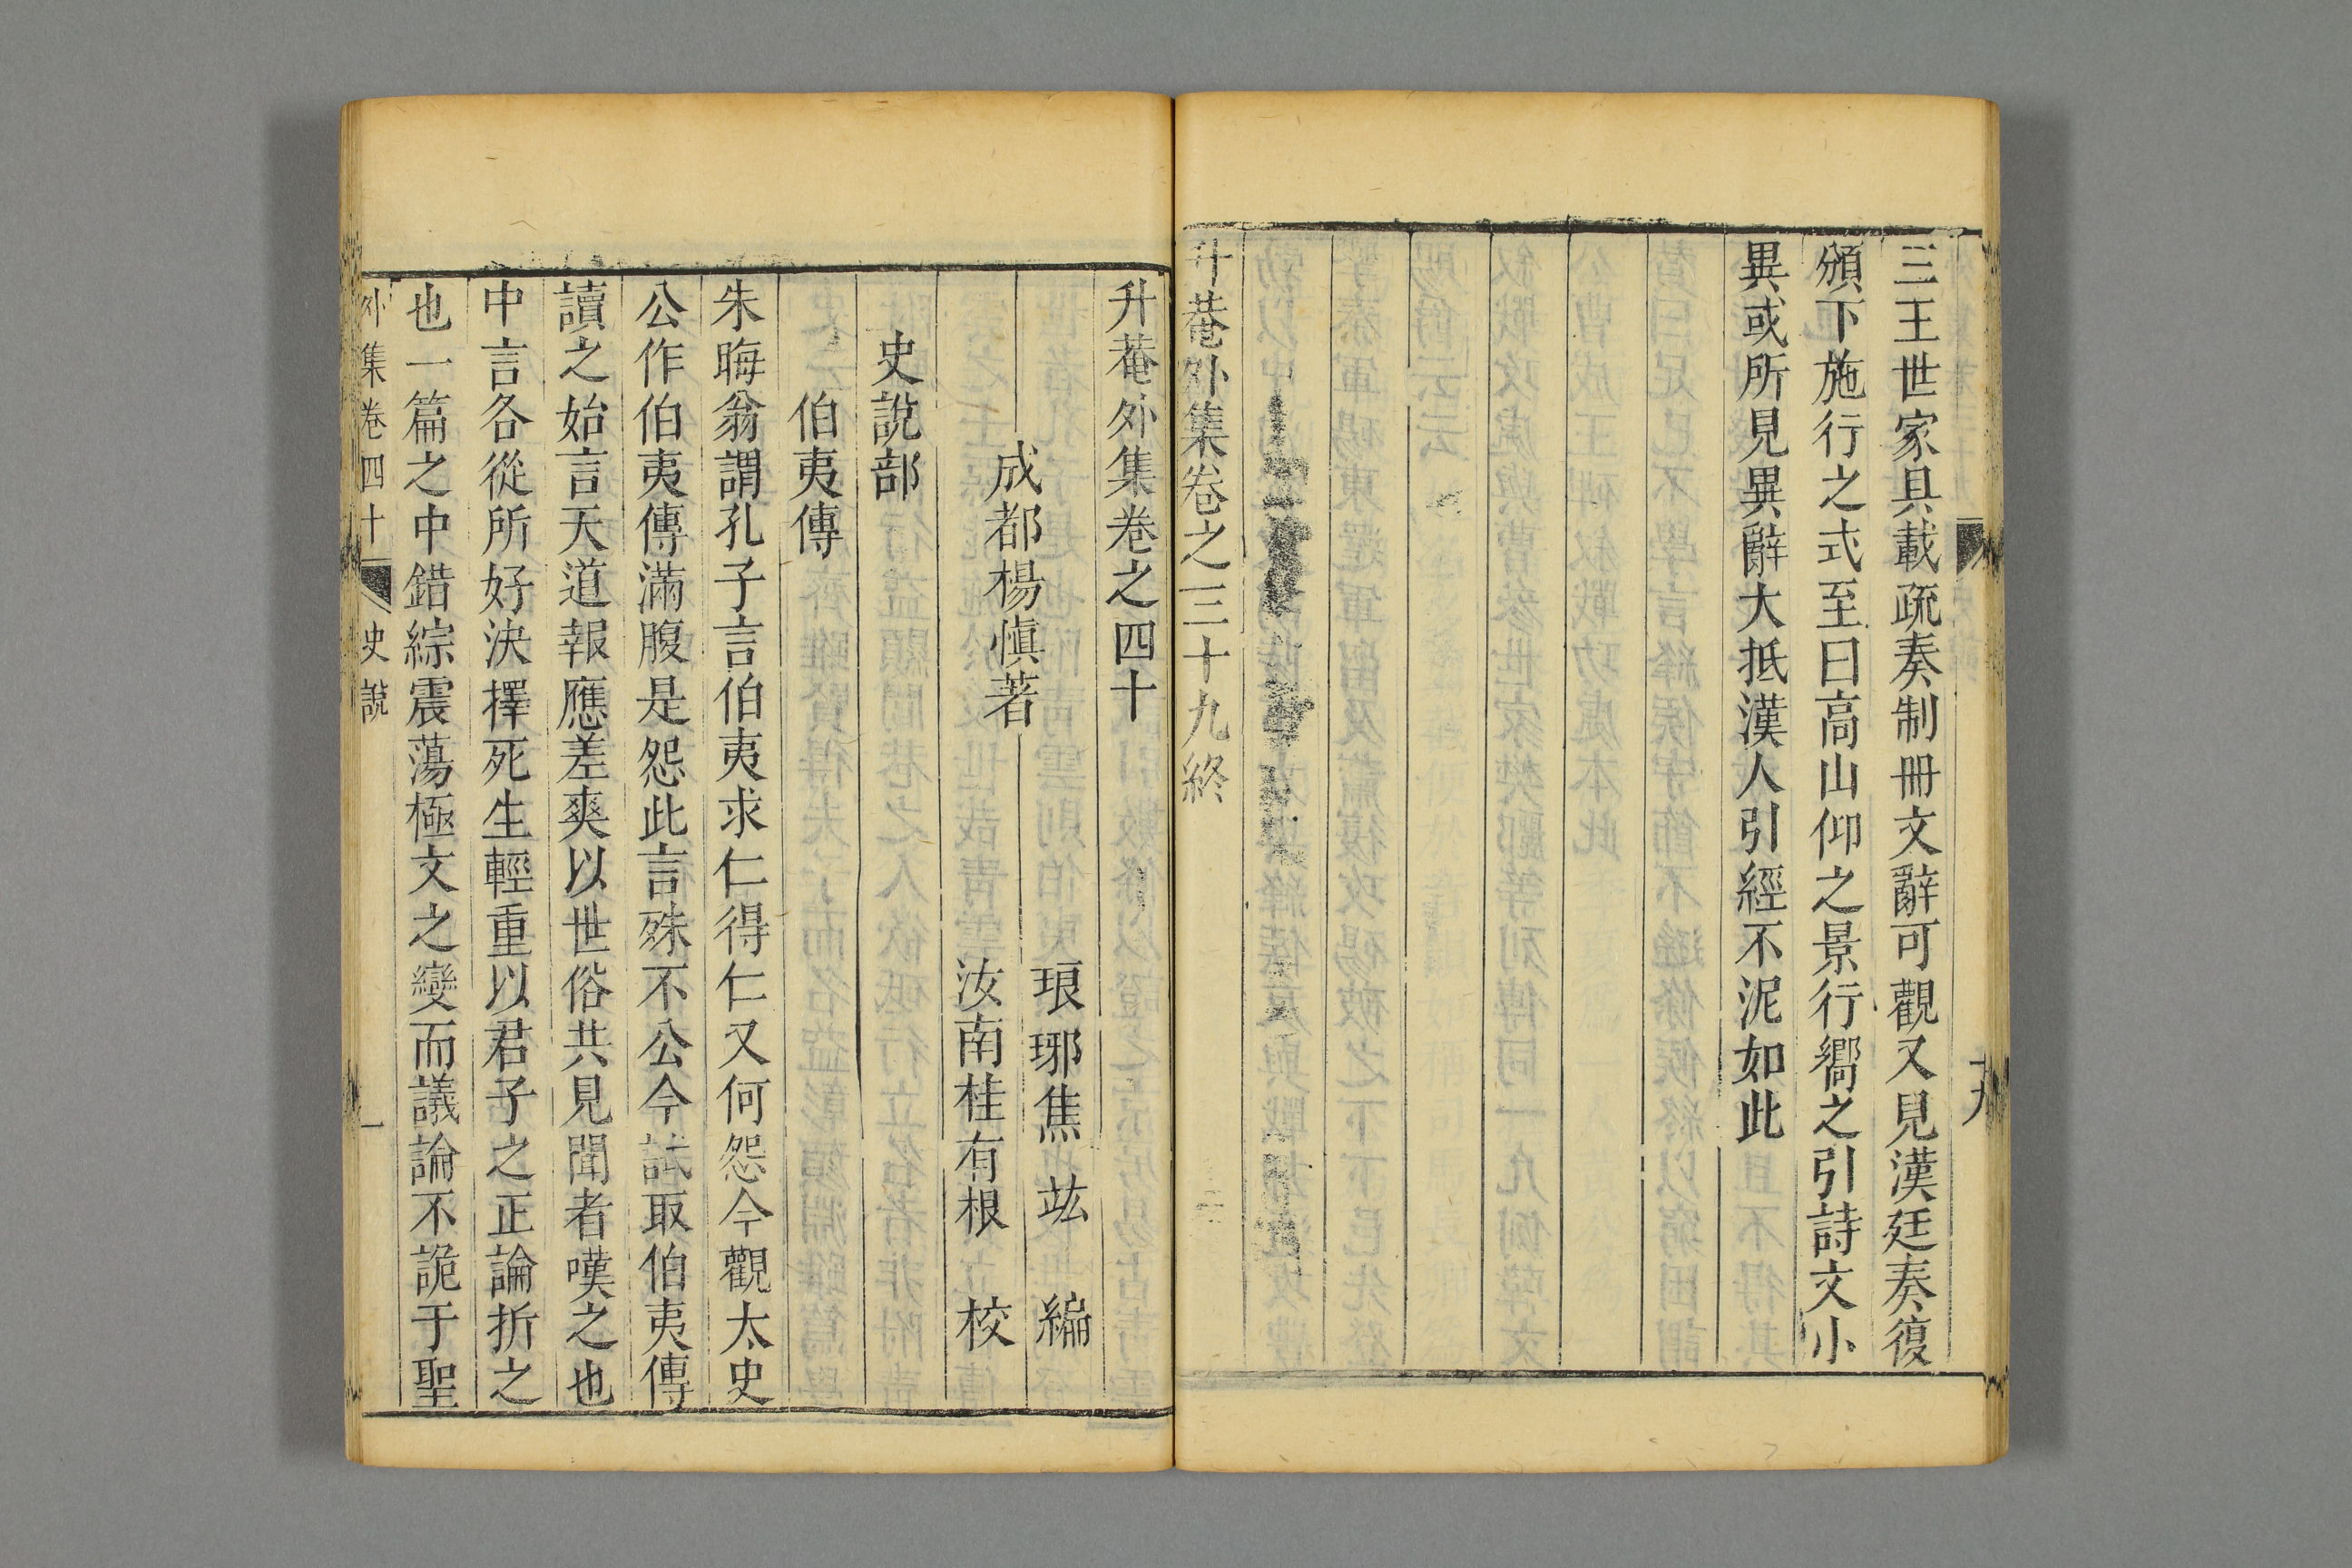 三王世家具載疏奏制冊文辭可觀又見漢廷奏復
頒下施行之式至曰高山仰之景行嚮之引詩文小
異或所見異辭大抵漢人引經不泥如此
升菴外集卷之三十九終
升菴外集卷之四十
成都楊慎著
琅琊焦竑編
汝南桂有根校
史說部
伯夷傳
朱晦翁謂孔子言伯夷求仁得仁又何怨今觀太史
公作伯夷傳滿腹是怨此言殊不公今試取伯夷傳
讀之始言天道報應差爽以世俗共見聞者嘆之也
中言各從所好決擇死生輕重以君子之正論折之
也一篇之中錯綜震蕩極文之變而議論不詭于聖
外集卷四十 史說 一